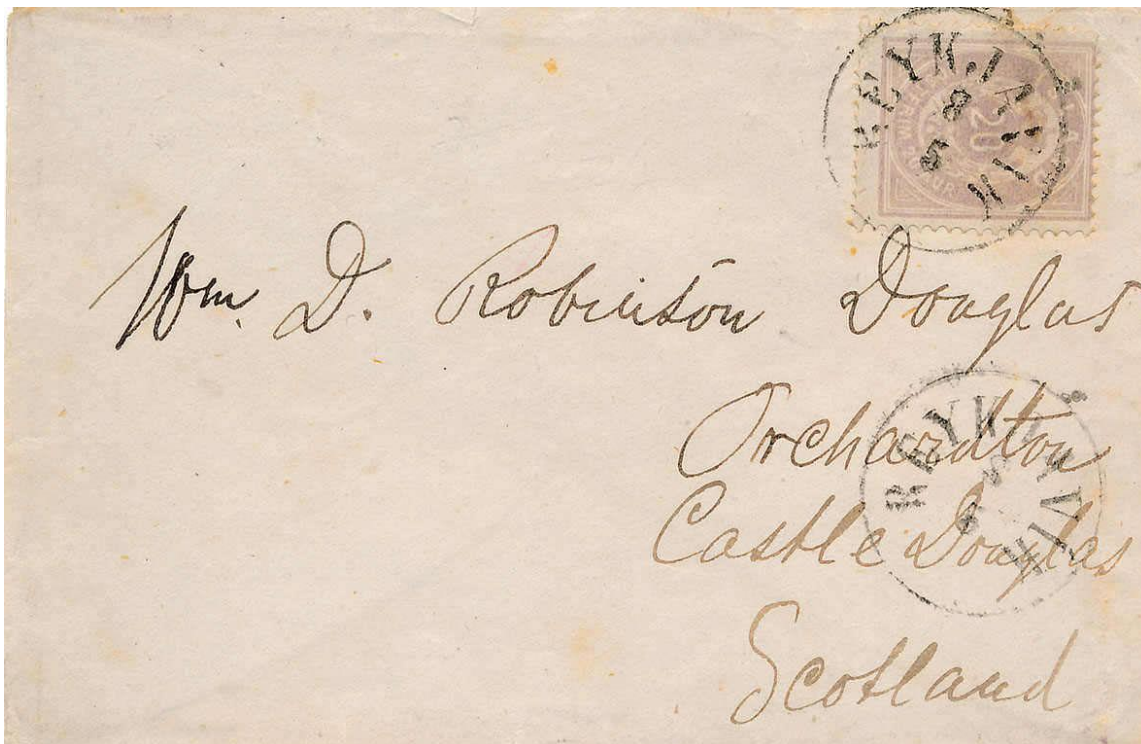 REYKJAVIK
8
5
20
Wm. D. Robinson Douglas
Orchardton
Castle Douglas
Scotland
REYKJAVIK
8